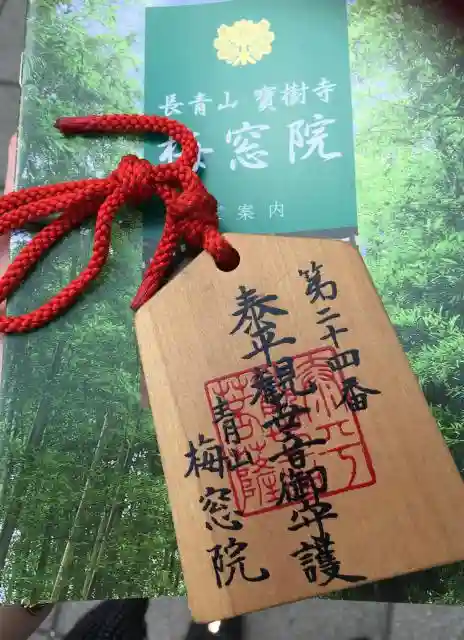 長青山 寳樹寺
梅窓院
案内
第二十四番
泰平観世音御守護
青山
梅窓院